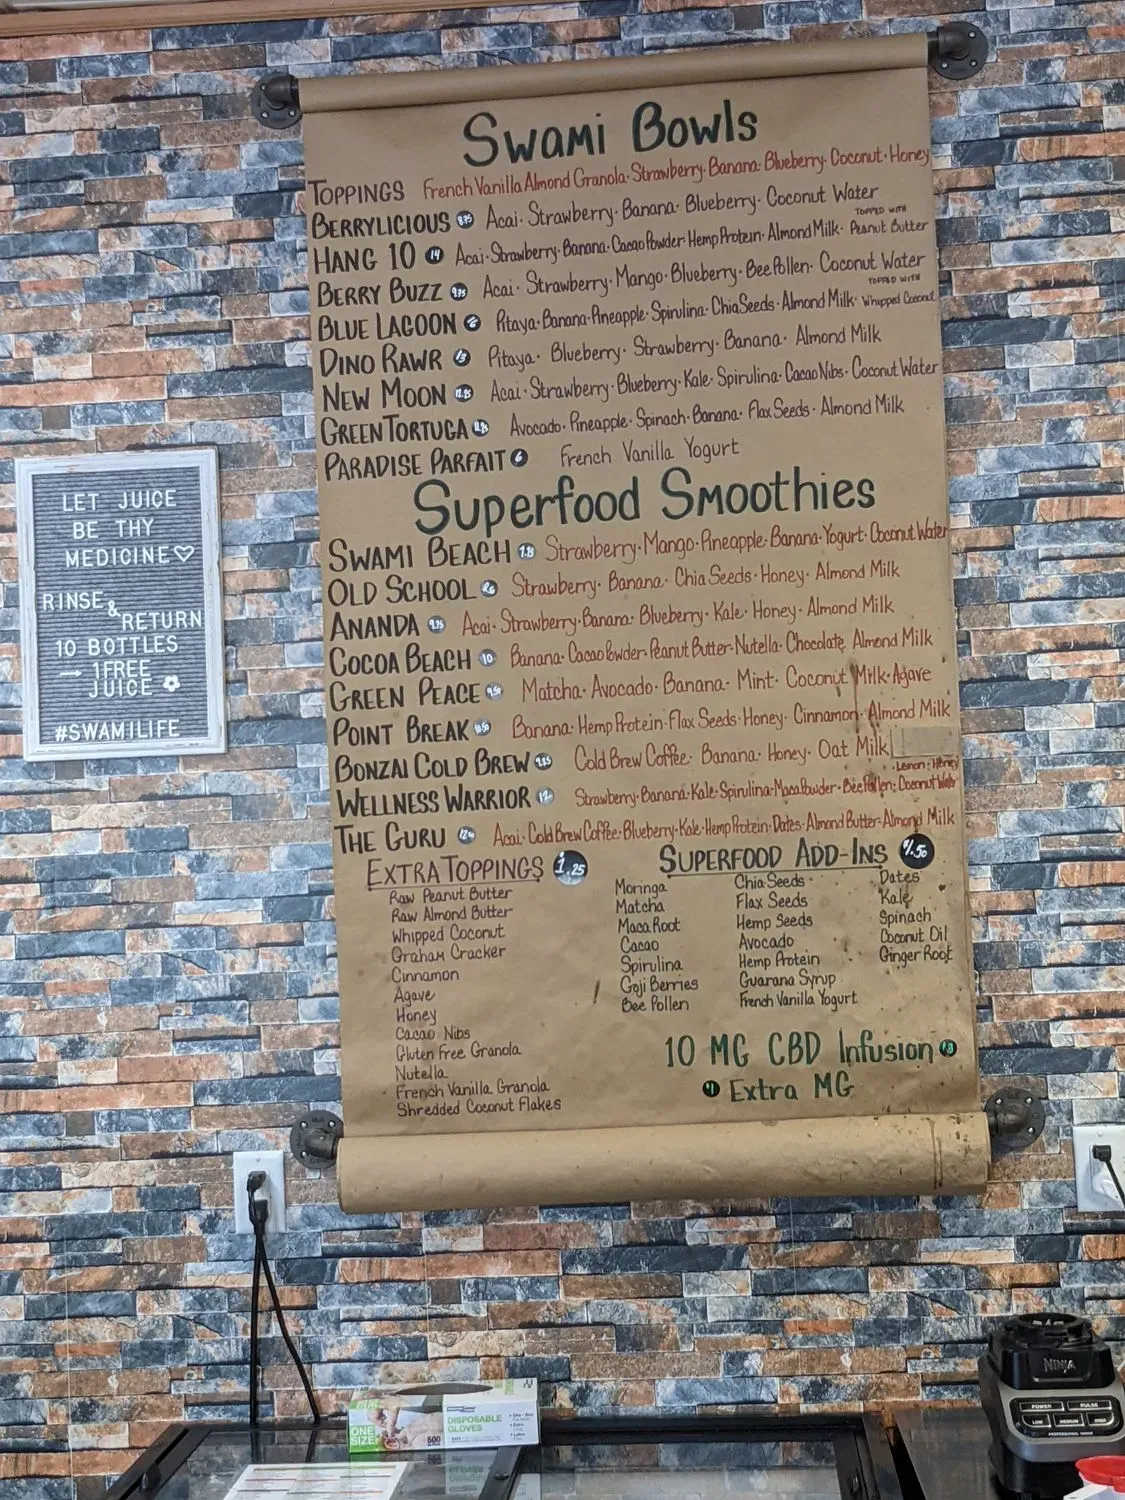 Swami Bowls
TOPPINGS French Vanilla Almond Granola · Strawberry · Banana · Blueberry · Coconut · Honey
BERRYLICIOUS Acai · Strawberry · Banana · Blueberry · Coconut Water
HANG 10 14 Acai · Strawberry · Banana · Cacao Powder · Hemp Protein · Almond Milk · TOPPED WITH Peanut Butter
BERRY BUZZ 9.75 Acai · Strawberry · Mango · Blueberry · Bee Pollen · Coconut Water
BLUE LAGOON Pitaya · Banana · Pineapple · Spirulina · Chia Seeds · Almond Milk · TOPPED WITH Whipped Coconut
DINO RAWR 13 Pitaya · Blueberry · Strawberry · Banana · Almond Milk
NEW MOON Acai · Strawberry · Blueberry · Kale · Spirulina · Cacao Nibs · Coconut Water
GREEN TORTUGA Avocado · Pineapple · Spinach · Banana · Flax Seeds · Almond Milk
PARADISE PARFAIT 6 French Vanilla Yogurt
Superfood Smoothies
SWAMI BEACH Strawberry · Mango · Pineapple · Banana · Yogurt · Coconut Water
OLD SCHOOL Strawberry · Banana · Chia Seeds · Honey · Almond Milk
ANANDA Acai · Strawberry · Banana · Blueberry · Kale · Honey · Almond Milk
COCOA BEACH 10 Banana · Cacao Powder · Peanut Butter · Nutella · Chocolate Almond Milk
GREEN PEACE 9.50 Matcha · Avocado · Banana · Mint · Coconut Milk · Agave
POINT BREAK Banana · Hemp Protein · Flax Seeds · Honey · Cinnamon · Almond Milk
BONZAI COLD BREW Cold Brew Coffee · Banana · Honey · Oat Milk
WELLNESS WARRIOR 12 Strawberry · Banana · Kale · Spirulina · Maca Powder · Bee Pollen · Lemon · Honey · Coconut Water
THE GURU Acai · Cold Brew Coffee · Blueberry · Kale · Hemp Protein · Dates · Almond Butter · Almond Milk
EXTRA TOPPINGS 1.25
Raw Peanut Butter
Raw Almond Butter
Whipped Coconut
Graham Cracker
Cinnamon
Agave
Honey
Cacao Nibs
Gluten Free Granola
Nutella
French Vanilla Granola
Shredded Coconut Flakes
SUPERFOOD ADD-INS 1.50
Moringa
Matcha
Maca Root
Cacao
Spirulina
Goji Berries
Bee Pollen
Chia Seeds
Flax Seeds
Hemp Seeds
Avocado
Hemp Protein
Guarana Syrup
French Vanilla Yogurt
Dates
Kale
Spinach
Coconut Oil
Ginger Root
10 MG CBD Infusion
Extra MG
LET JUICE
BE THY
MEDICINE♡
RINSE
&
RETURN
10 BOTTLES
→ 1 FREE
JUICE
#SWAMILIFE
ONE
SIZE
DISPOSABLE
GLOVES
500
NINJA
POWER PULSE
LOW MEDIUM HIGH